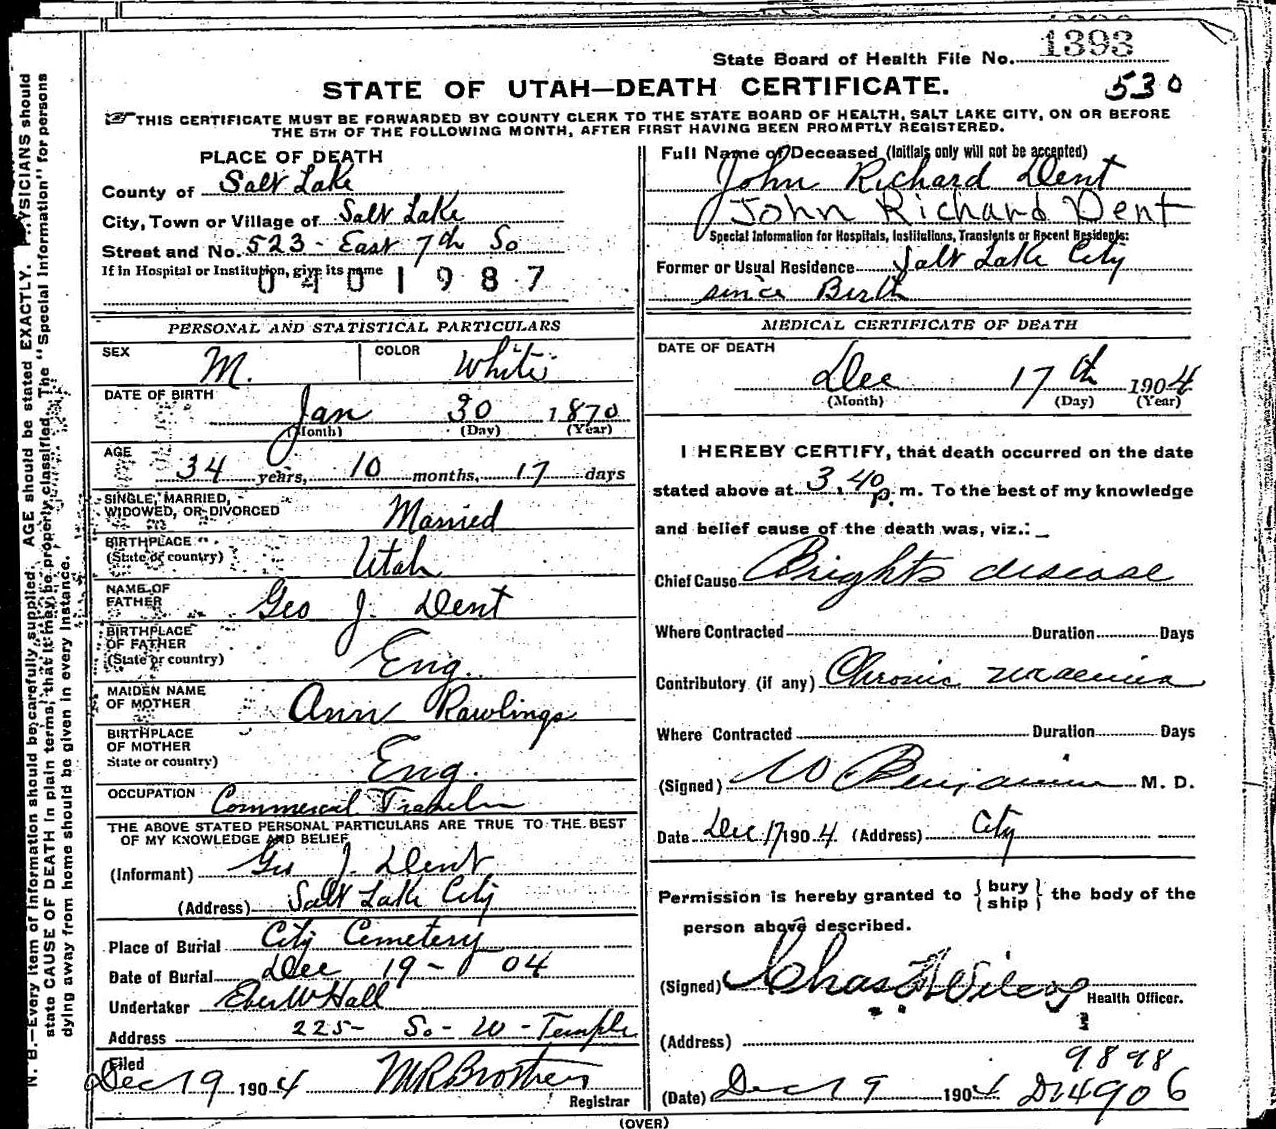 1393
State Board of Health File No.
STATE OF UTAH—DEATH CERTIFICATE.
530
THIS CERTIFICATE MUST BE FORWARDED BY COUNTY CLERK TO THE STATE BOARD OF HEALTH, SALT LAKE CITY, ON OR BEFORE
THE 5TH OF THE FOLLOWING MONTH, AFTER FIRST HAVING BEEN PROMPTLY REGISTERED.
N. B.—Every item of information should be carefully supplied. AGE should be stated EXACTLY. PHYSICIANS should
state CAUSE OF DEATH in plain terms, that it may be properly classified. The "Special Information" for persons
dying away from home should be given in every instance.
PLACE OF DEATH
County of Salt Lake
City, Town or Village of Salt Lake
Street and No. 523 - East 7th So
If in Hospital or Institution, give its name
0401987
PERSONAL AND STATISTICAL PARTICULARS
SEX M. COLOR White
DATE OF BIRTH
Jan 30 1870
(Month) (Day) (Year)
AGE
34 years, 10 months, 17 days
SINGLE, MARRIED,
WIDOWED, OR DIVORCED Married
BIRTHPLACE
(State or country) Utah
NAME OF
FATHER Geo J. Dent
BIRTHPLACE
OF FATHER
(State or country) Eng.
MAIDEN NAME
OF MOTHER Ann Rawlings
BIRTHPLACE
OF MOTHER
State or country) Eng.
OCCUPATION Commercal Traveler
THE ABOVE STATED PERSONAL PARTICULARS ARE TRUE TO THE BEST
OF MY KNOWLEDGE AND BELIEF
(Informant) Geo J. Dent
(Address) Salt Lake City
Place of Burial City Cemetery
Date of Burial Dec 19 - 04
Undertaker Eber W Hall
Address 225 - So - W - Temple
Filed
Dec 19 1904 M R Brothers
Registrar
Full Name of Deceased (Initials only will not be accepted)
John Richard Dent
John Richard Dent
Special Information for Hospitals, Institutions, Transients or Recent Residents:
Former or Usual Residence Salt Lake City
since Birth
MEDICAL CERTIFICATE OF DEATH
DATE OF DEATH
Dec 17th 1904
(Month) (Day) (Year)
I HEREBY CERTIFY, that death occurred on the date
stated above at 3.40 p. m. To the best of my knowledge
and belief cause of the death was, viz.:
Chief Cause Brights disease
Where Contracted Duration Days
Contributory (if any) Chronic uraemia
Where Contracted Duration Days
(Signed) W Benjamin M. D.
Date Dec 17 1904 (Address) City
Permission is hereby granted to {bury
ship} the body of the
person above described.
(Signed) Chas Wilcox
Health Officer.
(Address)
9898
(Date) Dec 19 1904 D14906
(OVER)